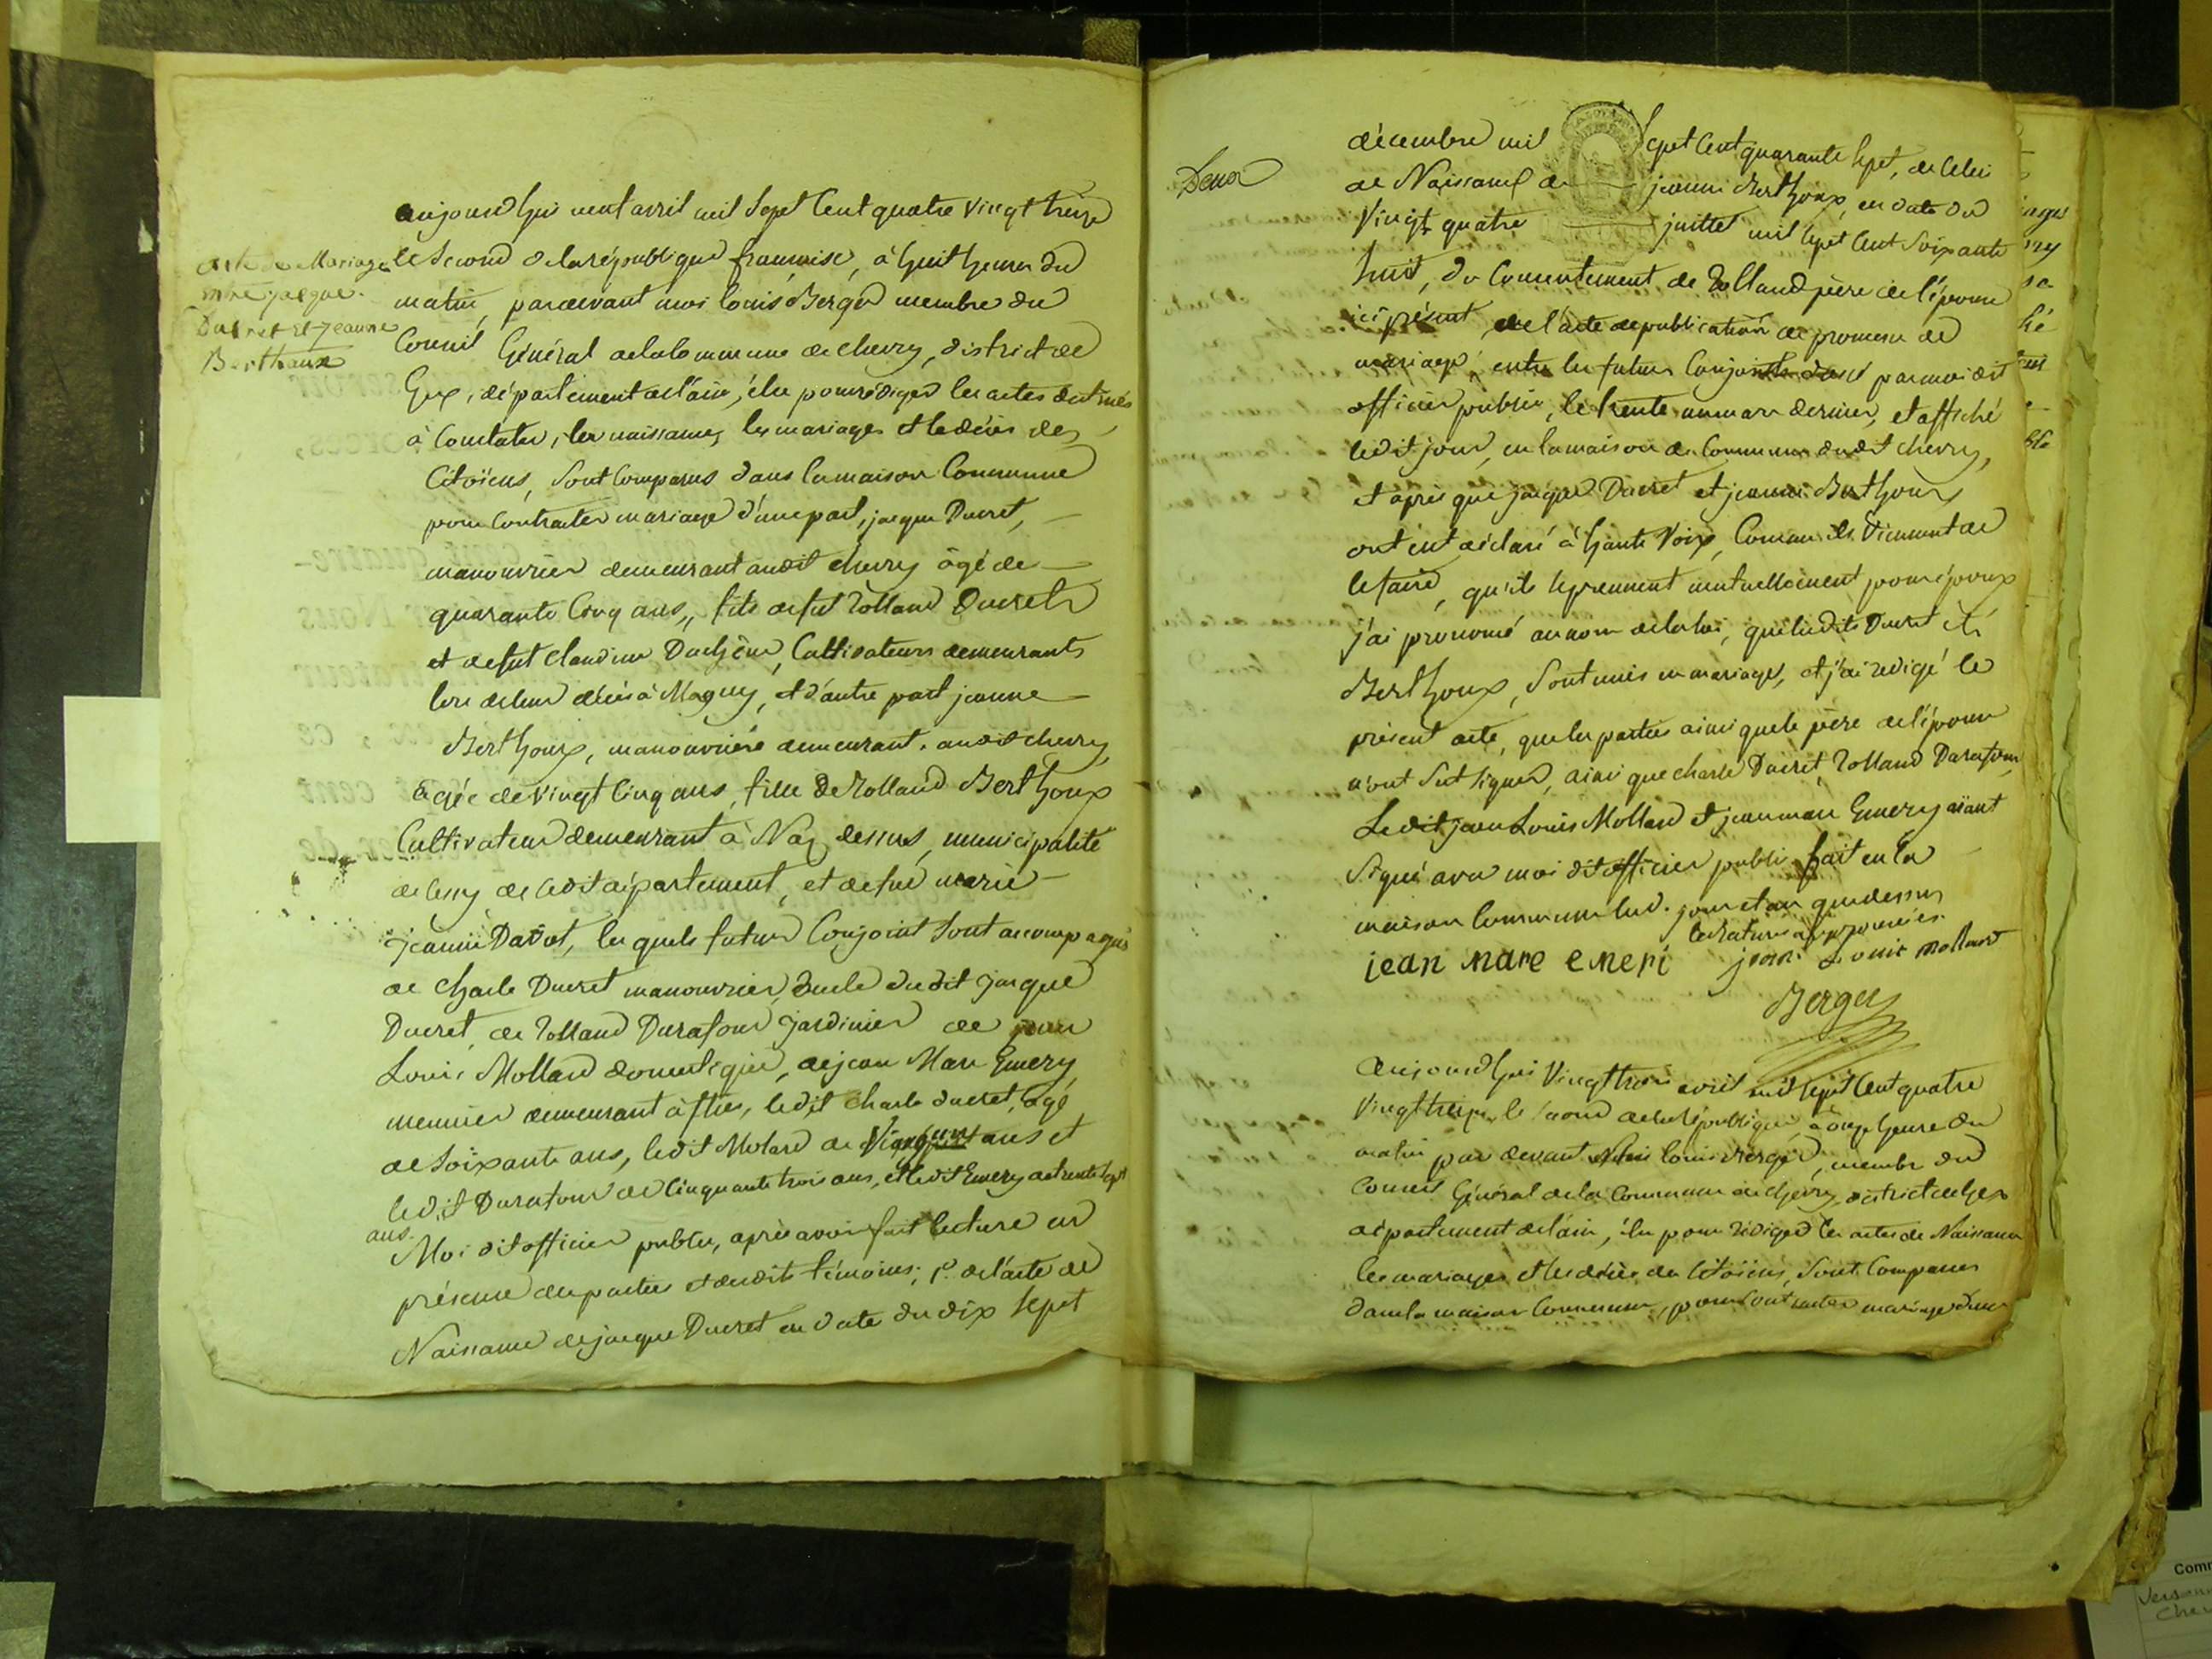 acte de Mariage
entre jacque
Ducret Et Jeanne
Berthoux
aujourd'hui neuf avril mil Sept Cent quatre vingt treize
le Second de la république française, à huit heures du
matin, pardevant moi louis Berger membre du
Conseil Général de la Commune de chevry, district de
Gex, département de l'ain, élu pour rédiger les actes destinés
à Constater, les naissances, les mariages et le décès des
Citoïens, Sont Comparus dans la maison Commune
pour Contracter mariage d'une part, jacque Ducret,
manouvrier demeurant audit chevry âgé de
quarante Cinq ans,, fils de fut Rolland Ducret
et de fut Claudine Duchêne, Cultivateurs demeurants
lors de leur décès à Magny, et d'autre part jeanne
Berthoux, manouvrière demeurant audit chevry,
âgée de vingt Cinq ans, fille de Rolland Berthoux
Cultivateur demeurant à Naz dessus, municipalité
de Cessy de Cedit département, et de fue marie
jeanne Davot, les quels futurs Conjoint Sont accompagnés
de Charle Ducret manouvrier, oncle dudit jacque
Ducret, de Rolland Durafour jardinier de jean
Louis Mollard domestique, de jean Marc Emery
meunier demeurant à fliés, ledit charle ducret, agé
de Soixante ans, ledit Molard de Vingt un ans et
ledit Durafour de Cinquante trois ans, et ledit Emery de trente sept
ans.
Moi dit officier public, après avoir fait lecture en
présence des parties et desdits témoins; 1º. de l'acte de
Naissance de jacque Ducret en date du dix Sept
Deux
décembre mil Sept Cent quarante Sept, de Celui
de Naissance de jeanne Berthoux, en date du
Vingt quatre juillet mil Sept Cent Soixante
huit, du Consentement de Rolland père de l'épouse
ici présent, de l'acte de publication de promesse de
mariage, entre les futurs Conjoints par moi dit
officier public, le trente un mars dernier, et affiché
ledit jour, en la maison de Commune dudit chevry,
et après que jacque Ducret et jeanne Berthoux,
ont eut déclaré à haute Voix, Comme ils Viennent de
le faire, qu'ils se prennent mutuellement pour époux
j'ai prononcé au nom de la loi, que lesdits Ducret et
Berthoux, Sont unis en mariage, et j'ai redigé le
présent acte, que les parties ainsi que le père de l'épouse
n'ont Sut Signer, ainsi que charle Ducret, Rolland Durafour,
Ledit jean Louis Mollard et jean marc Emery aïant
Signé avec moi dit officier public fait en la
maison Commune lesd. jour et an que dessus
les ratures approuvées.
jean marc emeri jean Louis mollard
Berger
Aujourd'hui Vingt trois avril mil Sept Cent quatre
Vingt treize, le second de la république, à onze heure du
matin par devant Moi louis Berger, membre du
Conseil Général de la Commune de chevry, district de Gex
département de l'ain, élu pour rédiger les actes de Naissance
les mariages et les décès des Citoïens, Sont Comparus
dans la maison Commune, pour Contracter mariage d'une